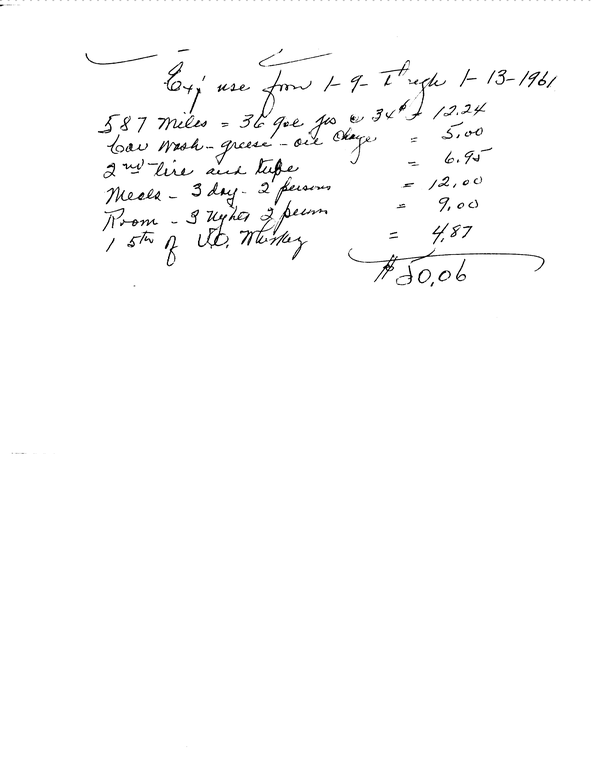 Expense from 1-9- Through 1-13-1961
587 Miles = 36 gal gas @ 34¢ = 12.24
Car Wash - grease - oil Change = 5.00
2nd tire and tube = 6.95
Meals - 3 day - 2 persons = 12,00
Room - 3 nights 2 person = 9,00
1 5th of V.O. Whiskey = 4,87
$50,06